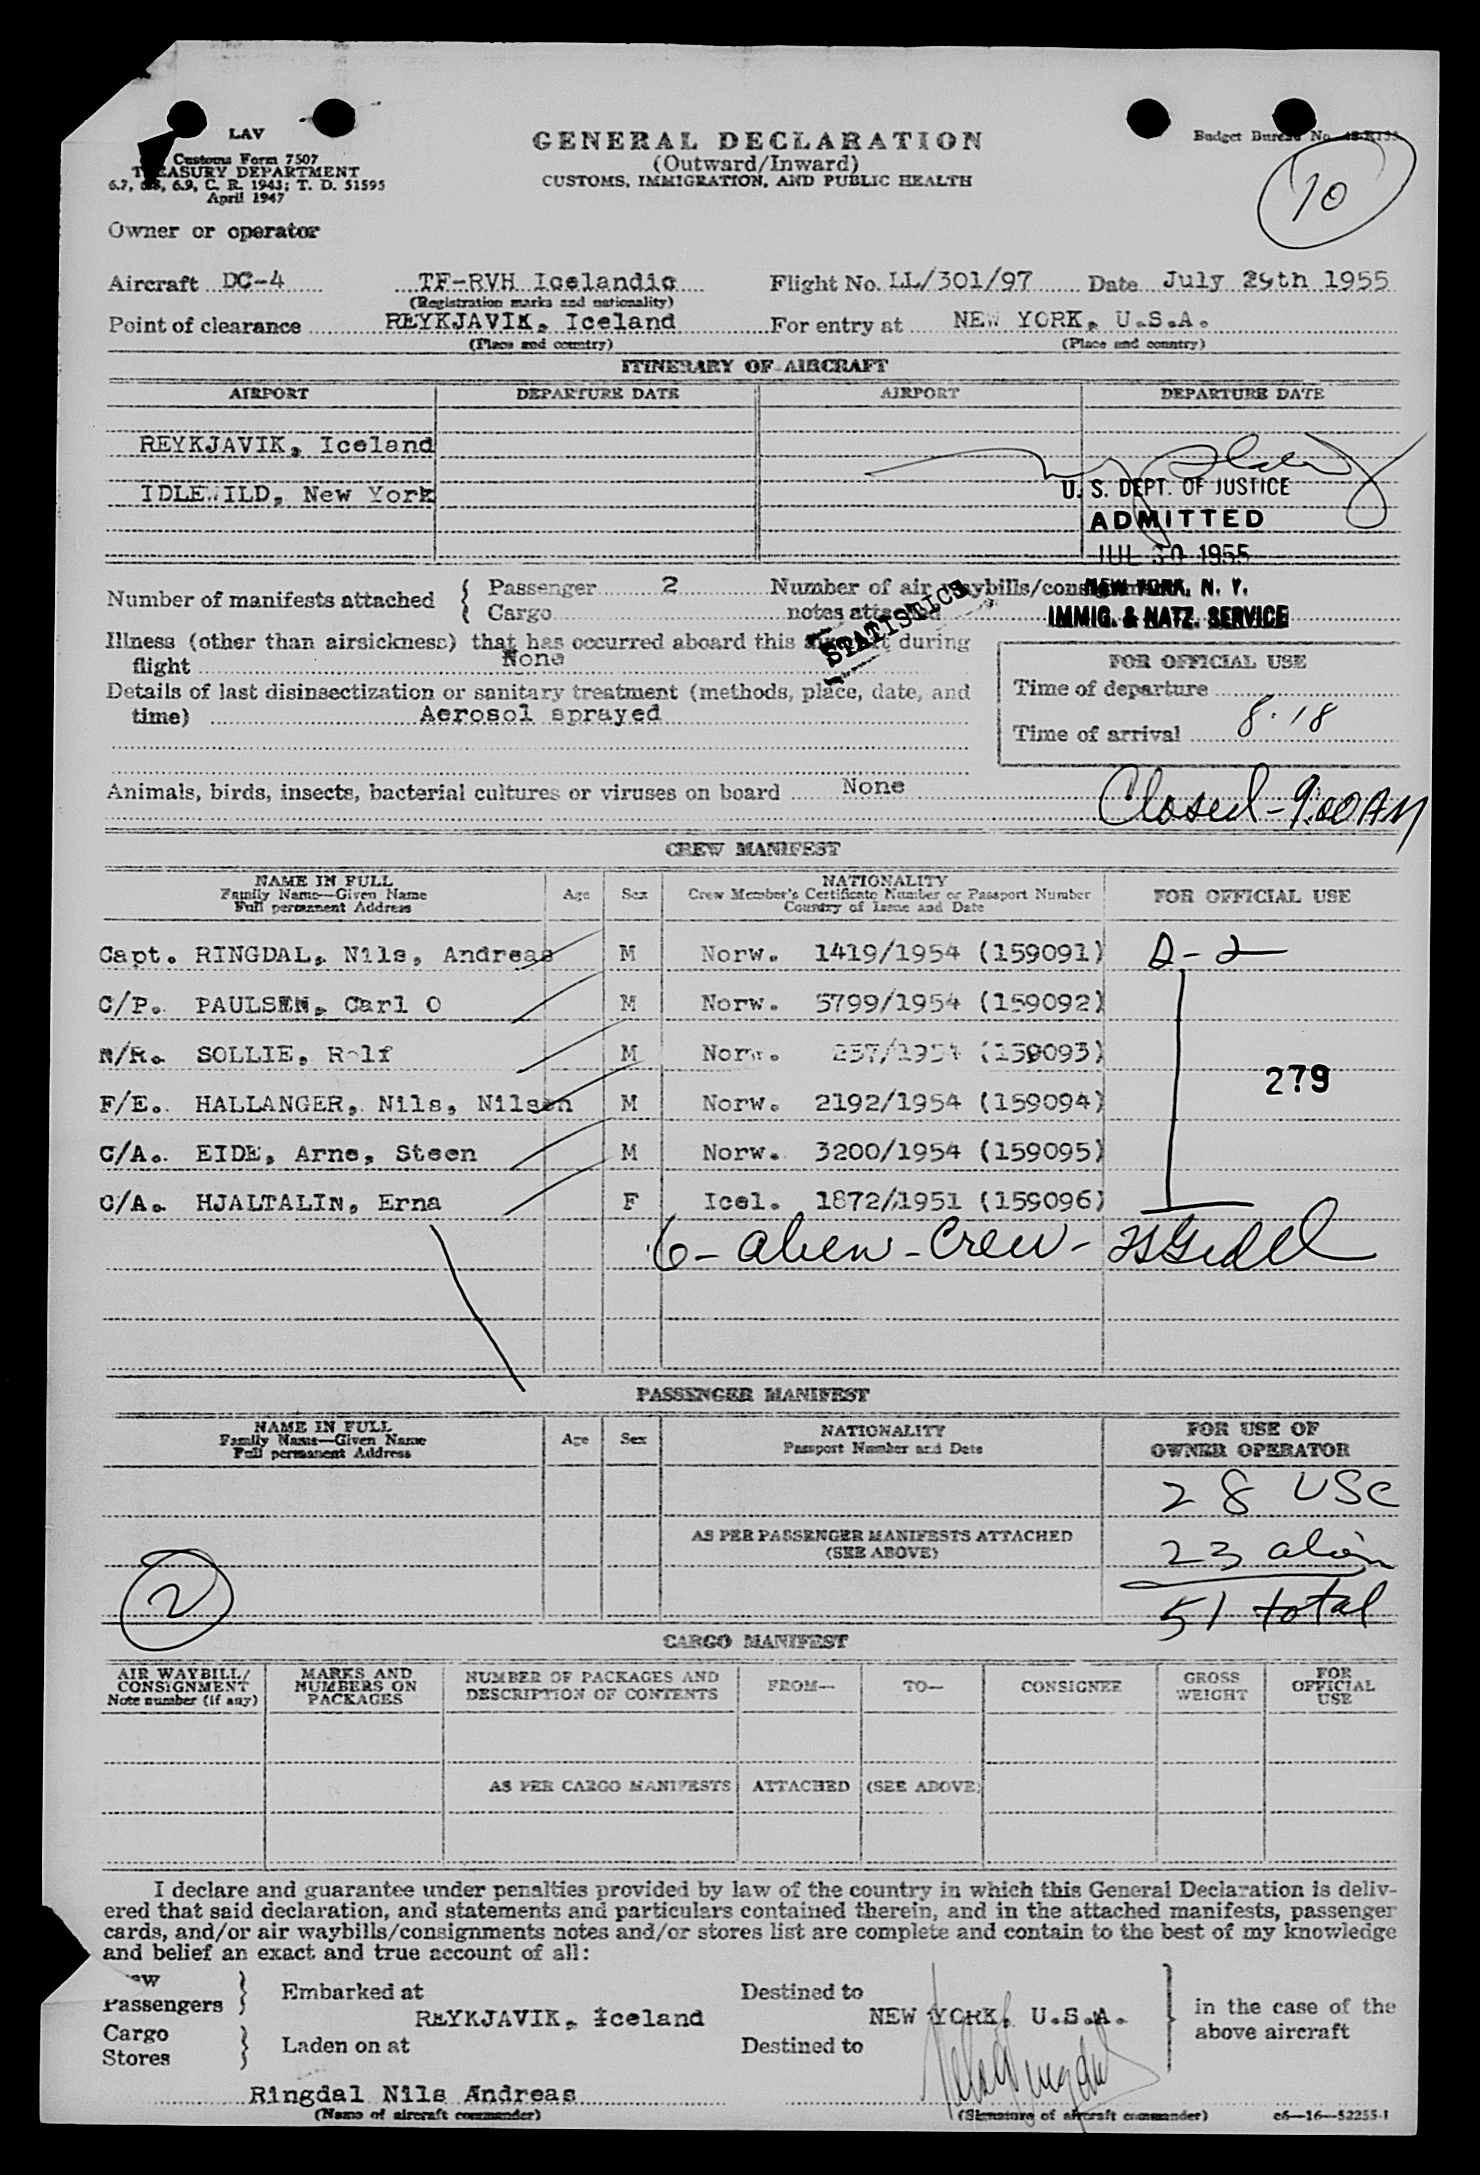 LAV
Customs Form 7507
TREASURY DEPARTMENT
6.7, 6.8, 6.9, C. R. 1943; T. D. 51595
April 1947
GENERAL DECLARATION
(Outward/Inward)
CUSTOMS, IMMIGRATION, AND PUBLIC HEALTH
Budget Bureau No.
10
Owner or operator
Aircraft DC-4 TF-RVH Icelandic Flight No. LL/301/97 Date July 29th 1955
(Registration marks and nationality)
Point of clearance REYKJAVIK, Iceland For entry at NEW YORK, U.S.A.
(Place and country) (Place and country)
ITINERARY OF AIRCRAFT
AIRPORT DEPARTURE DATE AIRPORT DEPARTURE DATE
REYKJAVIK, Iceland
IDLEWILD, New York
U. S. DEPT. OF JUSTICE
ADMITTED
JUL 30 1955
NEW YORK, N. Y.
IMMIG. & NATZ. SERVICE
Number of manifests attached { Passenger 2 Number of air waybills/consignment
Cargo notes attached
STATISTICS
Illness (other than airsickness) that has occurred aboard this aircraft during
flight None
Details of last disinsectization or sanitary treatment (methods, place, date, and
time) Aerosol sprayed
FOR OFFICIAL USE
Time of departure
Time of arrival 8.18
Animals, birds, insects, bacterial cultures or viruses on board None
Closed - 9:00 AM
CREW MANIFEST
NAME IN FULL
Family Name—Given Name
Full permanent Address
Age Sex
NATIONALITY
Crew Member's Certificate Number or Passport Number
Country of Issue and Date
FOR OFFICIAL USE
Capt. RINGDAL, Nils, Andreas M Norw. 1419/1954 (159091) D-2
C/P. PAULSEN, Carl O M Norw. 5799/1954 (159092)
N/R. SOLLIE, Rolf M Norw. 257/1954 (159093)
279
F/E. HALLANGER, Nils, Nilsen M Norw. 2192/1954 (159094)
C/A. EIDE, Arne, Steen M Norw. 3200/1954 (159095)
C/A. HJALTALIN, Erna F Icel. 1872/1951 (159096)
6 - alien - Crew -
PASSENGER MANIFEST
NAME IN FULL
Family Name—Given Name
Full permanent Address
Age Sex
NATIONALITY
Passport Number and Date
FOR USE OF
OWNER OPERATOR
28 USC
AS PER PASSENGER MANIFESTS ATTACHED
(SEE ABOVE)
23 alien
51 total
2
CARGO MANIFEST
AIR WAYBILL/
CONSIGNMENT
Note number (if any)
MARKS AND
NUMBERS ON
PACKAGES
NUMBER OF PACKAGES AND
DESCRIPTION OF CONTENTS
FROM— TO— CONSIGNEE
GROSS
WEIGHT
FOR
OFFICIAL
USE
AS PER CARGO MANIFESTS ATTACHED (SEE ABOVE)
I declare and guarantee under penalties provided by law of the country in which this General Declaration is deliv-
ered that said declaration, and statements and particulars contained therein, and in the attached manifests, passenger
cards, and/or air waybills/consignments notes and/or stores list are complete and contain to the best of my knowledge
and belief an exact and true account of all:
Crew
Passengers } Embarked at Destined to
REYKJAVIK, Iceland NEW YORK, U.S.A.
Cargo
Stores } Laden on at Destined to
in the case of the
above aircraft
Ringdal Nils Andreas
(Name of aircraft commander) (Signature of aircraft commander) c6—16—52255-1